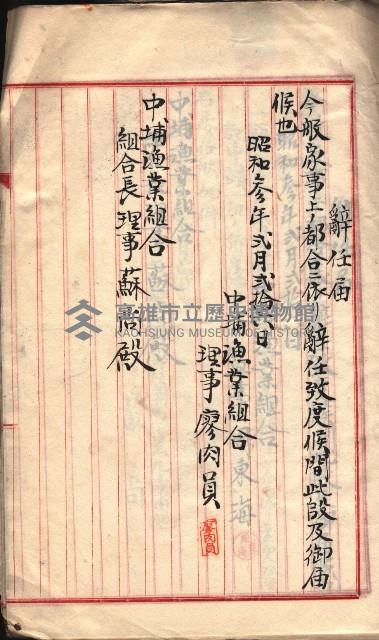 辭任届
今般家事上ノ都合ニ依リ辭任致度候間此段及御届
候也
昭和參年弍月弍拾八日
中埔漁業組合
理事廖肉員
廖肉員
中埔漁業組合
組合長理事蘇
殿
高雄市立歷史博物館
KAOHSIUNG MUSEUM OF HISTORY